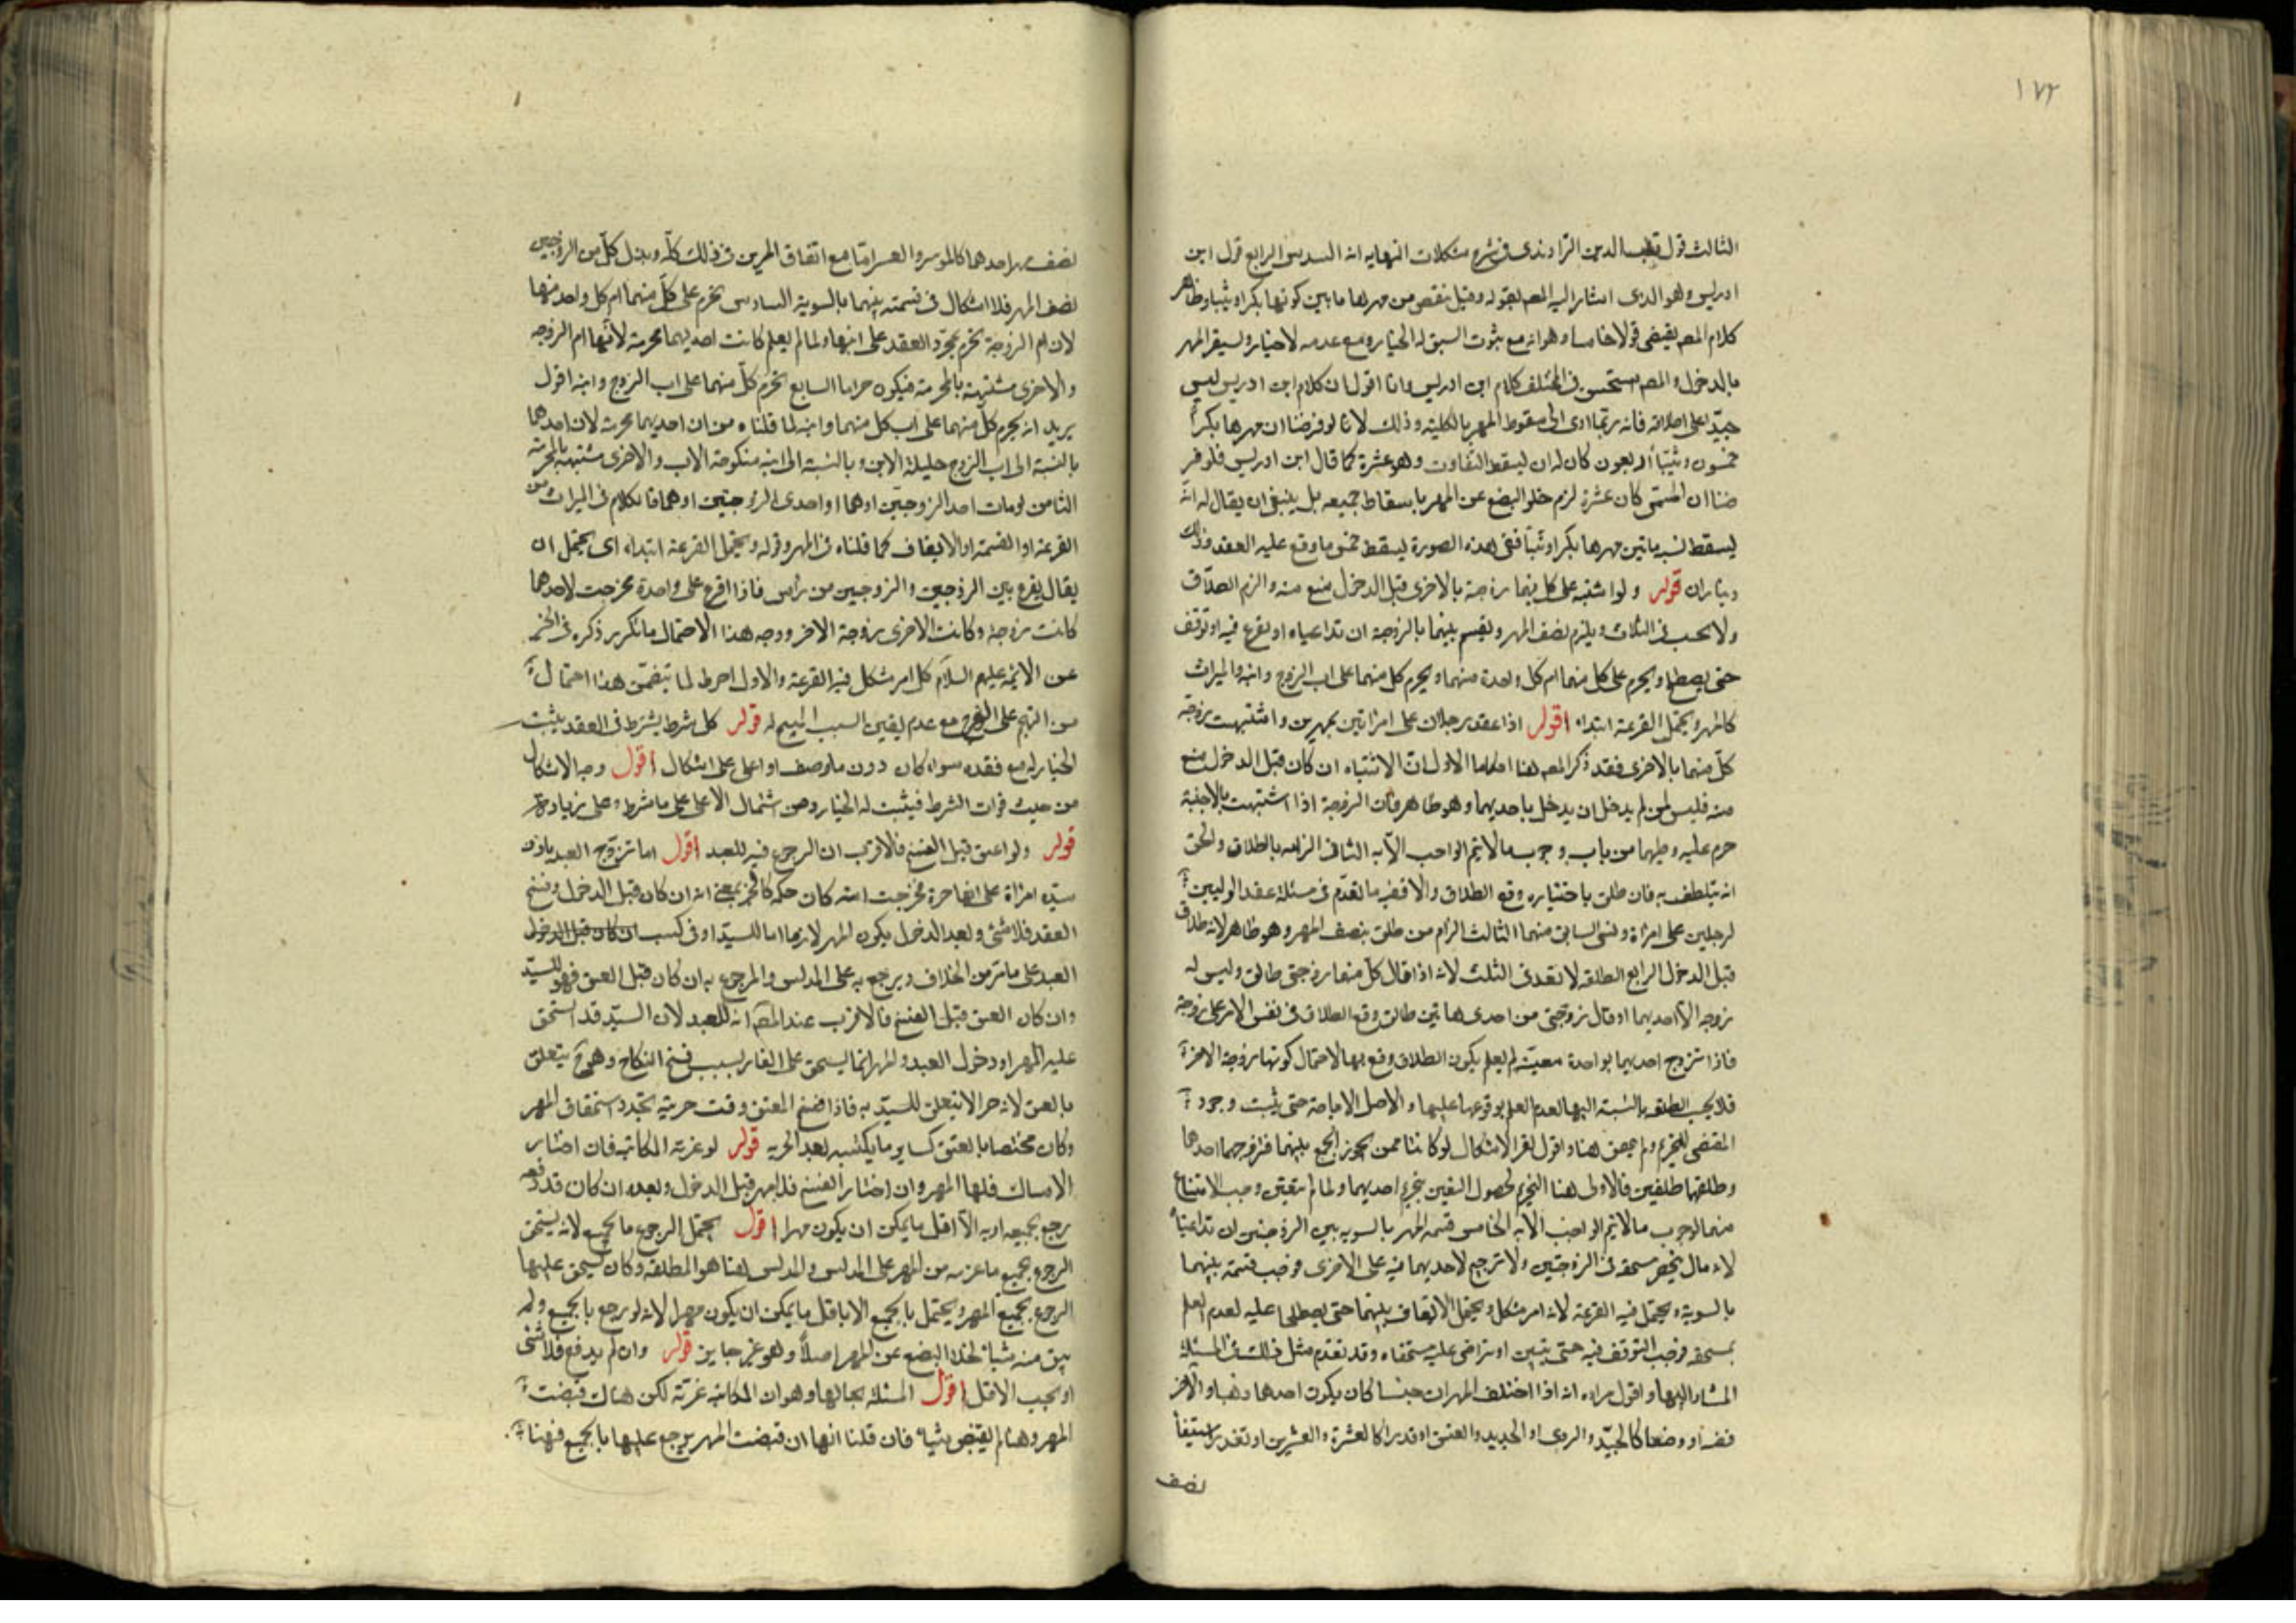 ١٧٢
الثالث قول قطب الدين الراوندى فى شرح مشكلات النهايه انه السدس الرابع قول ابن
ادريس وهو الذى اشار اليه المص بقوله وقيل ينقص من مهرها ما بين كونها بكرا وثيبا وظاهر
كلام المص يقتضى قولا خامسا وهو انه مع ثبوت السبق له الخيار ومع عدمه لا خيار ويستقر المهر
بالدخول والمص استحسن فى المختلف كلام ابن ادريس وانا اقول ان كلام ابن ادريس ليس
جيدا على اطلاقه فانه ربما ادى الى سقوط المهر بالكلية وذلك لانا لو فرضنا ان مهرها بكرا
خمسون وثيبا اربعون كان له ان يسقط التفاوت وهو عشرة كما قال ابن ادريس فلو فر
ضنا ان المسمى كان عشرة لزم خلو البضع عن المهر باسقاط جميعه بل ينبغى ان يقال له انه
يسقط نسبة ما بين مهرها بكرا وثيبا ففى هذه الصورة يسقط خمس ما وقع عليه العقد وذلك
ديناران قوله ولو اشتبه على كل منهما زوجته بالاخرى قبل الدخول منع منه والزم الطلاق
ولا يحسب فى الثلاث ويلزم نصف المهر ويقسم بينهما بالزوجة ان تداعياه او يقرع فيه او يوقف
حتى يصطلحا ويحرم على كل منهما ام كل واحدة منهما ويحرم كل منهما على اب الزوج وابنه والميراث
كالمهر ويحتمل القرعة ابتداء اقول اذا عقد رجلان على امراتين بمهرين واشتبهت زوجة
كل منهما بالاخرى فقد ذكر المص هنا احكاما الاول ان الاشتباه ان كان قبل الدخول منع
منه فليس لمن لم يدخل ان يدخل باحديهما وهو ظاهر فان الزوجة اذا اشتبهت بالاجنبية
حرم عليه وطيهما من باب وجوب ما لا يتم الواجب الا به الثانى الزامه بالطلاق والحق
انه يتلطف به فان طلق باختياره وقع الطلاق والا ففيه ما تقدم فى مسئلة عقد الوليين
لرجلين على امراة ونسى السابق منهما الثالث الزام من طلق بنصف المهر وهو ظاهر لانه طلاق
قبل الدخول الرابع الطلقه لا تعد فى الثلث لانه اذا قال كل منهما زوجتى طالق وليس له
زوجه الا احديهما او قال زوجتى من احدى هاتين طالق وقع الطلاق فى نفس الامر على زوجته
فاذا تزوج احديهما بواحدة معينة لم يعلم بكون الطلاق وقع بها لاحتمال كونها زوجة الاخر
فلا يحسب الطلقه بالنسبة اليها لعدم العلم بوقوعها عليها والاصل الاباحة حتى يثبت وجود
المقتضى للتحريم ولم يحصل هنا واقول نعم الاشكال لو كانتا ممن يجوز الجمع بينهما فتزوجهما احدهما
وطلقهما طلقتين فالاولى هنا التحريم لحصول اليقين بتحريم احديهما ولما لم يتعين وجب الامتناع
منهما لوجوب ما لا يتم الواجب الا به الخامس قسمة المهر بالسويه بين الزوجتين ان تداعيتا
لانه مال ينحصر مستحقه فى الزوجتين ولا ترجيح لاحديهما فيه على الاخرى فوجب قسمته بينهما
بالسوية ويحتمل فيه القرعة لانه امر مشكل ويحتمل الايقاف بينهما حتى يصطلحا عليه لعدم العلم
بمستحقه فوجب التوقف فيه حتى يتبين او يتراضى عليه مستحقاه وقد تقدم مثل ذلك فى المسئلة
المشار اليها واقول مراده انه اذا اختلف المهران جنسا كان يكون احدهما ذهبا والاخر
فضه او وصفا كالجيد والردى او الجديد والعتق او قدرا كالعشرة والعشرين او تعذر استيفا
نصف
نصف مهر احدهما كالموسر والمعسر اما مع اتفاق المهرين فى ذلك كله وبذل كل من الزوجين
نصف المهر فلا اشكال فى قسمته بينهما بالسوية السادس تحرم على كل منهما ام كل واحد منهما
لان ام الزوجة تحرم بمجرد العقد على ابنتها ولما لم يعلم كانت احديهما محرمة لانها ام الزوجه
والاخرى مشتبهة بالمحرمة فيكون حراما السابع تحرم كل منهما على اب الزوج وابنه اقول
يريد انه يحرم كل منهما على اب كل منهما وابنه لما قلناه من ان احديهما محرمة لان احدهما
بالنسبة الى اب الزوج حليلة الابن وبالنسبة الى ابنه منكوحة الاب والاخرى مشتبهه بالمحرمة
الثامن لو مات احد الزوجين او هما او احدى الزوجتين او هما فالكلام فى الميراث من
القرعة او القسمة او الايقاف كما قلناه فى المهر وقوله ويحتمل القرعة ابتداء اى يحتمل ان
يقال يقرع بين الزوجين والزوجتين من راس فاذا اقرع على واحدة فخرجت لاحدهما
كانت زوجة وكانت الاخرى زوجة الاخر ووجه هذا الاحتمال ما تكرر ذكره فى الخبر
عن الائمة عليهم السلام كل امر مشكل فيه القرعة والاول احوط لما يتضمن هذا احتمال
من التهجم على الفرج مع عدم يقين السبب المبيح له قوله كل شرط يشترط فى العقد يثبت
الخيار له مع فقده سواء كان دون ما وصف او اعلى على اشكال اقول وجه الاشكال
من حيث فوات الشرط فيثبت له الخيار ومن اشتمال الاعلى على ما شرط وعلى زيادة
قوله ولو اعتق قبل الفسخ فالاقرب ان الرجوع فيه للعبد اقول اما تزوج العبد باذن
سيده امراة على انها حرة فخرجت امته كان حكمه كالحر بمعنى انه ان كان قبل الدخول وفسخ
العقد فلا شئ وبعد الدخول يكون المهر لازما اما للسيد او فى كسب ان كان قبل الدخول
العبد على ما مر من الخلاف ويرجع به على المدلس والمرجوع به ان كان قبل العتق فهو للسيد
وان كان العتق قبل الفسخ فالاقرب عند المص انه للعبد لان السيد قد استحق
عليه المهر او دخول العبد والمهر انما يستحق على الغار بسبب فسخ النكاح وهو ح يتعلق
بالعتق لانه حر لا يتعلق للسيد به فاذا فسخ المعتق وقت حريته تجدد استحقاق المهر
وكان مختصا بالعتق كساير ما يكتسبه بعد الحريه قوله لو غرته المكاتبه فان اختار
الامساك فلها المهر وان اختار الفسخ فلا مهر قبل الدخول وبعده ان كان قد دفعه
يرجع بجميعه او به الا اقل ما يمكن ان يكون مهرا اقول يحتمل الرجوع بالجميع لانه يستحق
الرجوع بجميع ما غرمه من المهر على المدلس والمدلس هنا هو المطلقه وكان يستحق عليها
الرجوع بجميع المهر ويحتمل بالجميع الا باقل ما يمكن ان يكون مهرا لانه لو يرجع بالجميع ولم
يبق منه شيا لخلا البضع عن المهر اصلا وهو غير جايز قوله وان لم يدفع فلا شئ
او يجب الاقل اقول المسئلة بحالها وهو ان المكاتبه غرته لكن هناك قبضت
المهر وهنا لم يقبض شيا فان قلنا انها ان قبضت المهر يرجع عليها بالجميع فهنا